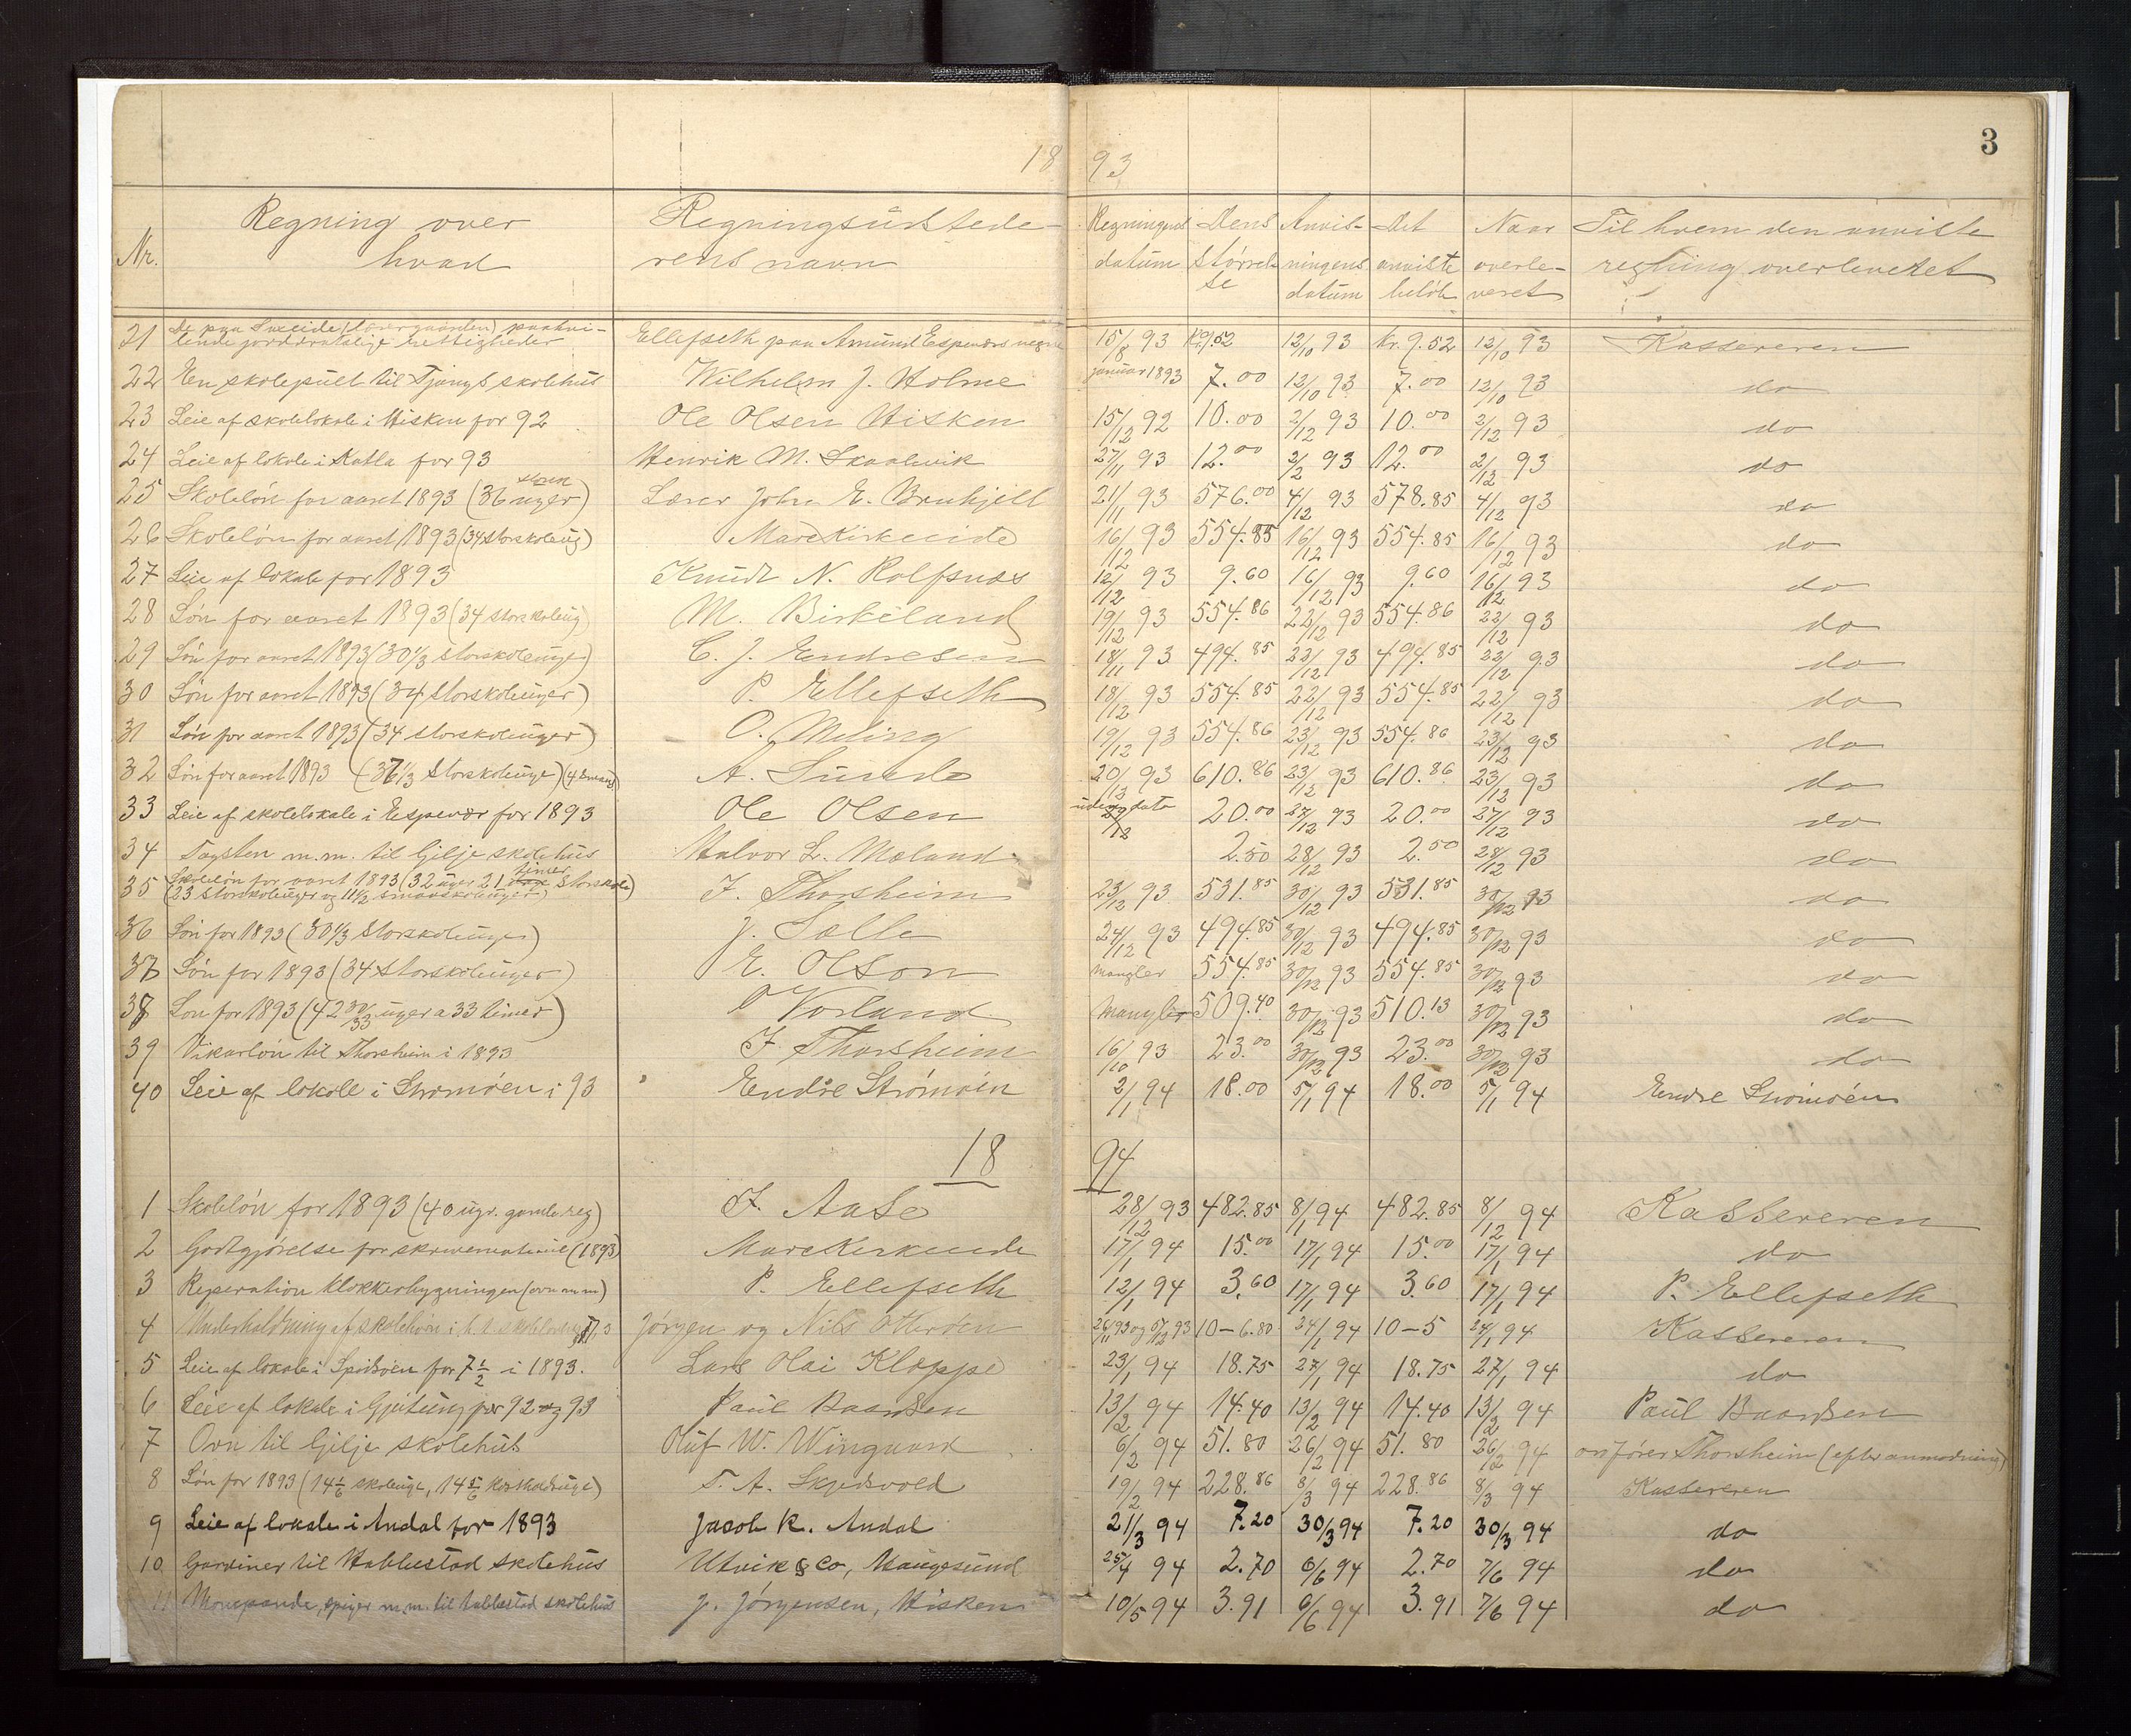 3
18 93
Nr. Regning over hvad Regningsudstederens navn Regningens datum Dens størrelse Anvisningens datum Det anviste beløb Naar overleveret Til hvem den anviste regning overleveret
21 De paa Sveide (lærergaarden) paahvilende jorddrotslige rettigheder Ellefseth paa Amund Espeværs vegne 15/8 93 Kr. 9.52 12/10 93 kr. 9.52 12/10 93 Kassereren
22 En skolepult til Tjongs skolehus Wilhelm J. Holme januar 1893 7.00 12/10 93 7.00 12/10 93 do
23 Leie af skolelokale i Hisken for 92 Ole Olsen Hisken 15/12 92 10.00 2/12 93 10.00 2/12 93 do
24 Leie af lokale i Katla for 93 Henrik M. Skaalevik 27/11 93 12.00 2/2 93 12.00 2/12 93 do
25 Skoleløn for aaret 1893 (36 storsk uger) Lærer John E. 21/11 93 576.00 4/12 93 578.85 4/12 93 do
26 Skoleløn for aaret 1893 (34 storskoleug) Mare Kirkeeide 16/12 93 554.85 16/12 93 554.85 16/12 93 do
27 Leie af lokale for 1893 Knudt N. Rolfsnæs 12/12 93 9.60 16/12 93 9.60 16/12 93 do
28 Løn for aaret 1893 (34 storskoleug) M. Birkeland 19/12 93 554.86 22/12 93 554.86 22/12 93 do
29 Løn for aaret 1893 (30 1/3 storskoleuger) C. J. Endresen 18/11 93 494.85 22/12 93 494.85 22/12 93 do
30 Løn for aaret 1893 (34 storskoleuger) P. Ellefseth 18/12 93 554.85 22/12 93 554.85 22/12 93 do
31 Løn for aaret 1893 (34 storskoleuger) O. Meling 19/12 93 554.86 23/12 93 554.86 23/12 93 do
32 Løn for aaret 1893 (37 1/3 Storskoleuge) (4 smaas) A. Sunde 20/12 93 610.86 23/12 93 610.86 23/12 93 do
33 Leie af skolelokale i Espevær for 1893 Ole Olsen uden dato 20.00 27/12 93 20.00 27/12 93 do
34 Tagsten m.m. til Gilje skolehus Halvor L. Mæland 2.50 28/12 93 2.50 28/12 93 do
35 Skoleløn for aaret 1893 (32 uger 21 timer storskole) (23 storskoleuger og 11 1/2 smaaskoleuger) F. Thorsheim 23/12 93 531.85 30/12 93 531.85 30/12 93 do
36 Løn for 1893 (30 1/3 Storskoleuger) J. Sælle 24/12 93 494.85 30/12 93 494.85 30/12 93 do
37 Løn for 1893 (34 Storskoleuger) E. Olson mangler 554.85 30/12 93 554.85 30/12 93 do
38 Løn for 1893 (42 30/33 uger a 33 timer) O Vorland Mangler 509.40 30/12 93 510.13 30/12 93 do
39 Vikarløn til Thorsheim i 1893 F. Thorsheim 16/10 93 23.00 30/12 93 23.00 30/12 93 do
40 Leie af lokale i Strømøen i 93 Endre Strømøen 2/1 94 18.00 5/1 94 18.00 5/1 94 Endre Strømøen
18 94
1 Skoleløn for 1893 (40 ugr. gamle reg) F. Aase 28/12 93 482.85 8/1 94 482.85 8/12 94 Kassereren
2 Godtgjørelse for skrivemateriale (1893) Mare Kirkeeide 17/1 94 15.00 17/1 94 15.00 17/1 94 do
3 Reperation klokkerbygningen (ovn m m) P. Ellefseth 12/1 94 3.60 17/1 94 3.60 17/1 94 P. Ellefseth
4 Underholdning af skolebørn i Jørgen og Nils Otterøen 26/11 93 og 5/12 93 10–6.80 24/1 94 10–5 24/1 94 Kassereren
5 Leie af lokale i Spidsøen for 7 1/2 i 1893. Lars Olai Kloppe 23/1 94 18.75 27/1 94 18.75 27/1 94 do
6 Leie af lokale i Gjeitung for 92 og 93 Paul Baardsen 13/2 94 14.40 13/2 94 14.40 13/2 94 Paul Baardsen
7 Ovn til Gilje skolehus Oluf W. Wingaard 6/2 94 51.80 26/2 94 51.80 26/2 94 ordfører Thorsheim (efter anmodning)
8 Løn for 1893 (14 1/6 skoleuge, 14 5/6 T. A. Skjedsvold 19/2 94 228.86 8/3 94 228.86 8/3 94 Kassereren
9 Leie af lokale i Andal for 1893 Jacob K. Andal 21/3 94 7.20 30/3 94 7.20 30/3 94 do
10 Gardiner til Hallestad skolehus Utvik & Co, Haugesund 25/4 94 2.70 6/6 94 2.70 7/6 94 do
11 spiger m.m. til Hallestad skolehus J. Jørgensen, Hisken 10/5 94 3.91 6/6 94 3.91 7/6 94 do